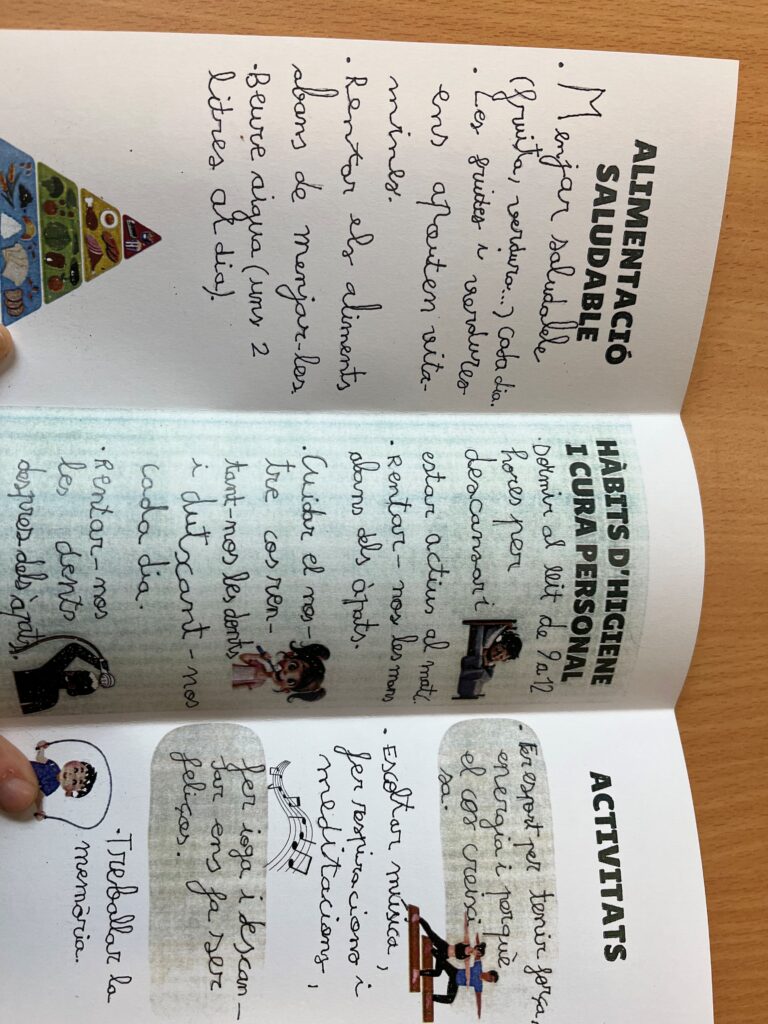 ALIMENTACIÓ
SALUDABLE
· Menjar saludable
(fruita, verdura...) cada dia.
· Les fruites i verdures
ens aporten vita-
mines.
· Rentar els aliments
abans de menjar-les.
· Beure aigua (uns 2
litres al dia).
HÀBITS D'HIGIENE
I CURA PERSONAL
· Dormir al llit de 9 a 12
hores per
descansar i
estar actius al matí.
· Rentar-nos les mans
abans dels àpats.
· Cuidar el nos-
tre cos ren-
tant-nos les dents
i dutxant-nos
cada dia.
· Rentar-nos
les dents
despres dels àpats.
ACTIVITATS
· Fer esport per tenir força,
energia i perquè
el cos creixi
sa.
· Escoltar música,
fer respiracions i
meditacions,
fer ioga i descan-
sar ens fa ser
feliços.
· Treballar la
memòria.